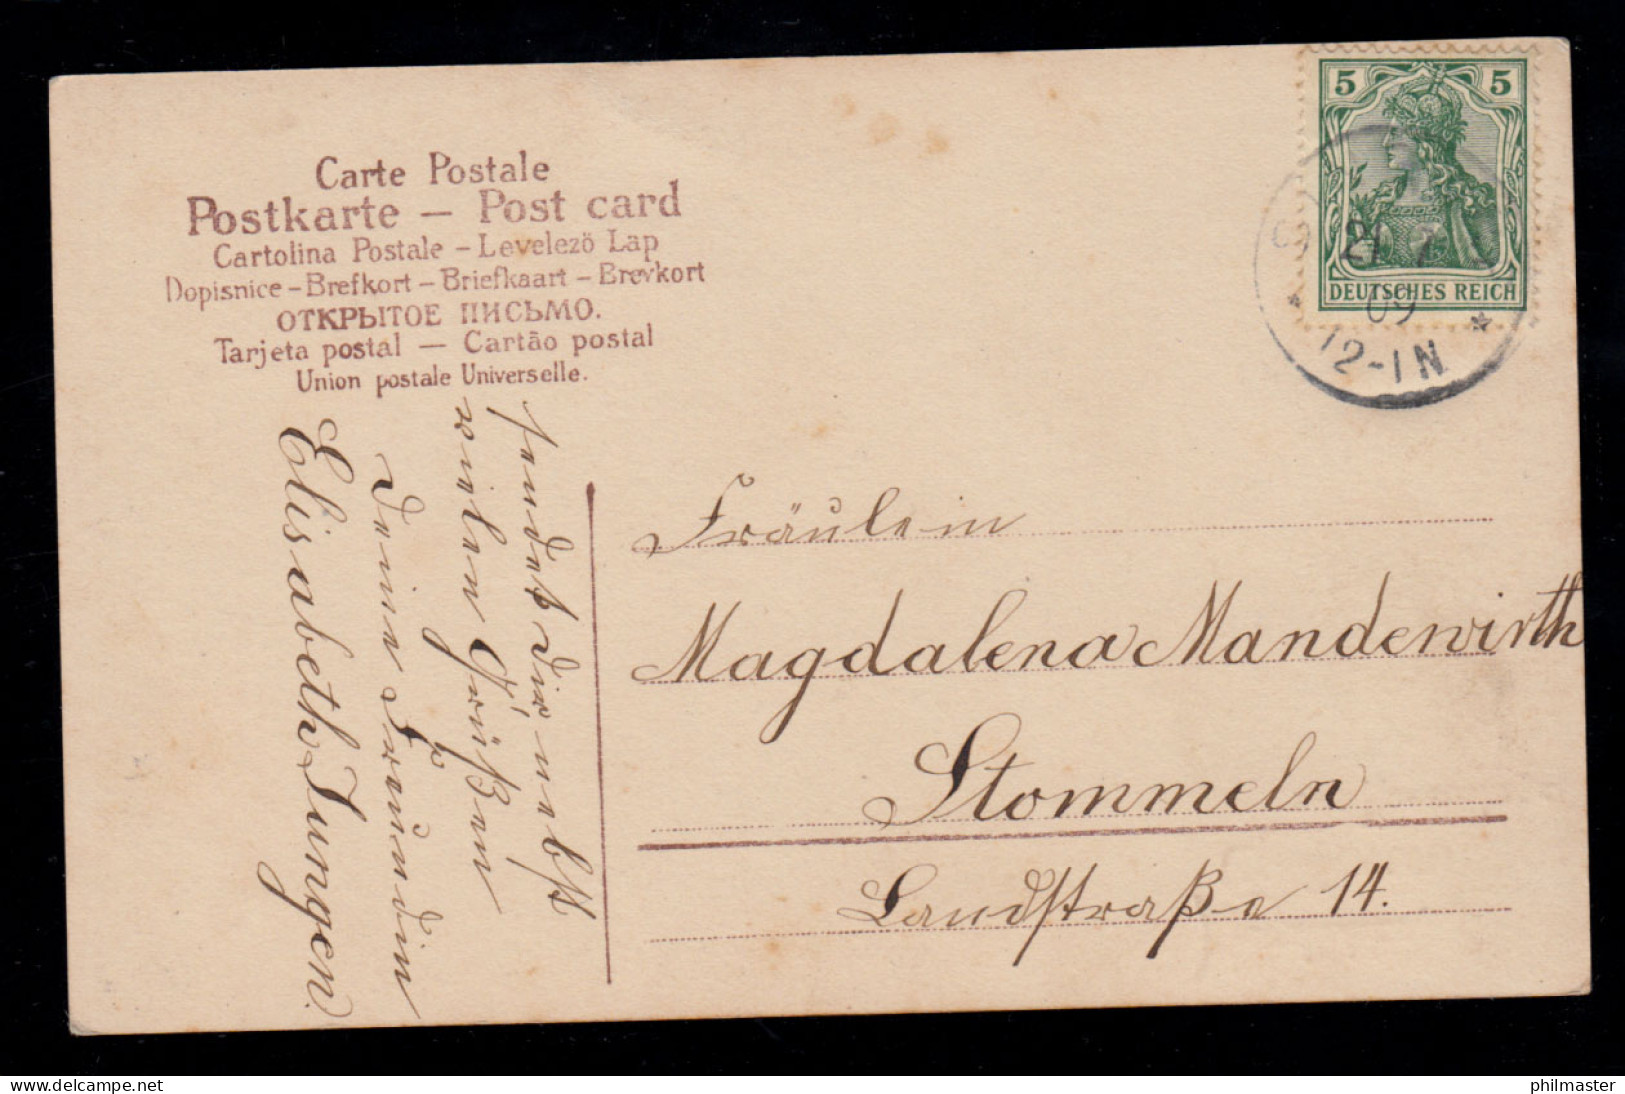 Carte Postale
Postkarte – Post card
Cartolina Postale – Levelezö Lap
Dopisnice – Brefkort – Briefkaart – Brevkort
ОТКРЫТОЕ ПИСЬМО.
Tarjeta postal — Cartão postal
Union postale Universelle.
5 5
DEUTSCHES REICH
09
* 12-1N *
sendet dir nebst
vielen Grüßen
deine Freundin
Elisabeth Jungen.
Fräulein
Magdalena Mandewirth
Stommeln
Landstraße 14.
philmaster